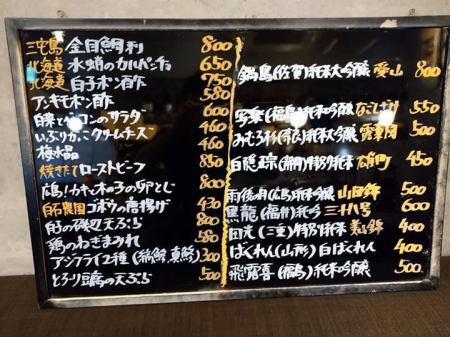 三宅島 金目鯛刺 800
北海道 水蛸のカルパッチョ 650
北海道 白子ポン酢 750
アンキモポン酢 580
白菜とベーコンのサラダ 600
いぶりがっこクリームチーズ 460
梅水晶 460
焼きたてローストビーフ 850
広島!カキ木の子の卵とじ 680
白石農園ゴボウの唐揚げ 430
白子の磯辺天ぷら 800
鶏のねぎまみれ 580
アジフライ2種 300
とろり豆腐の天ぷら 500
鍋島(佐賀)純米大吟醸 愛山 800
写楽(福島)純米吟醸 なごしざけ 550
みむろ杉(奈良)純米吟醸 露葉風 500
白隠正宗(静岡)特別純米 雄町 450
雨後の月(広島)純米吟醸 山田錦 500
黒龍(福井)純吟 三十八号 600
田光(三重)特別純米 400
ばくれん(山形)白ばくれん 400
飛露喜(福島)純米吟醸 500